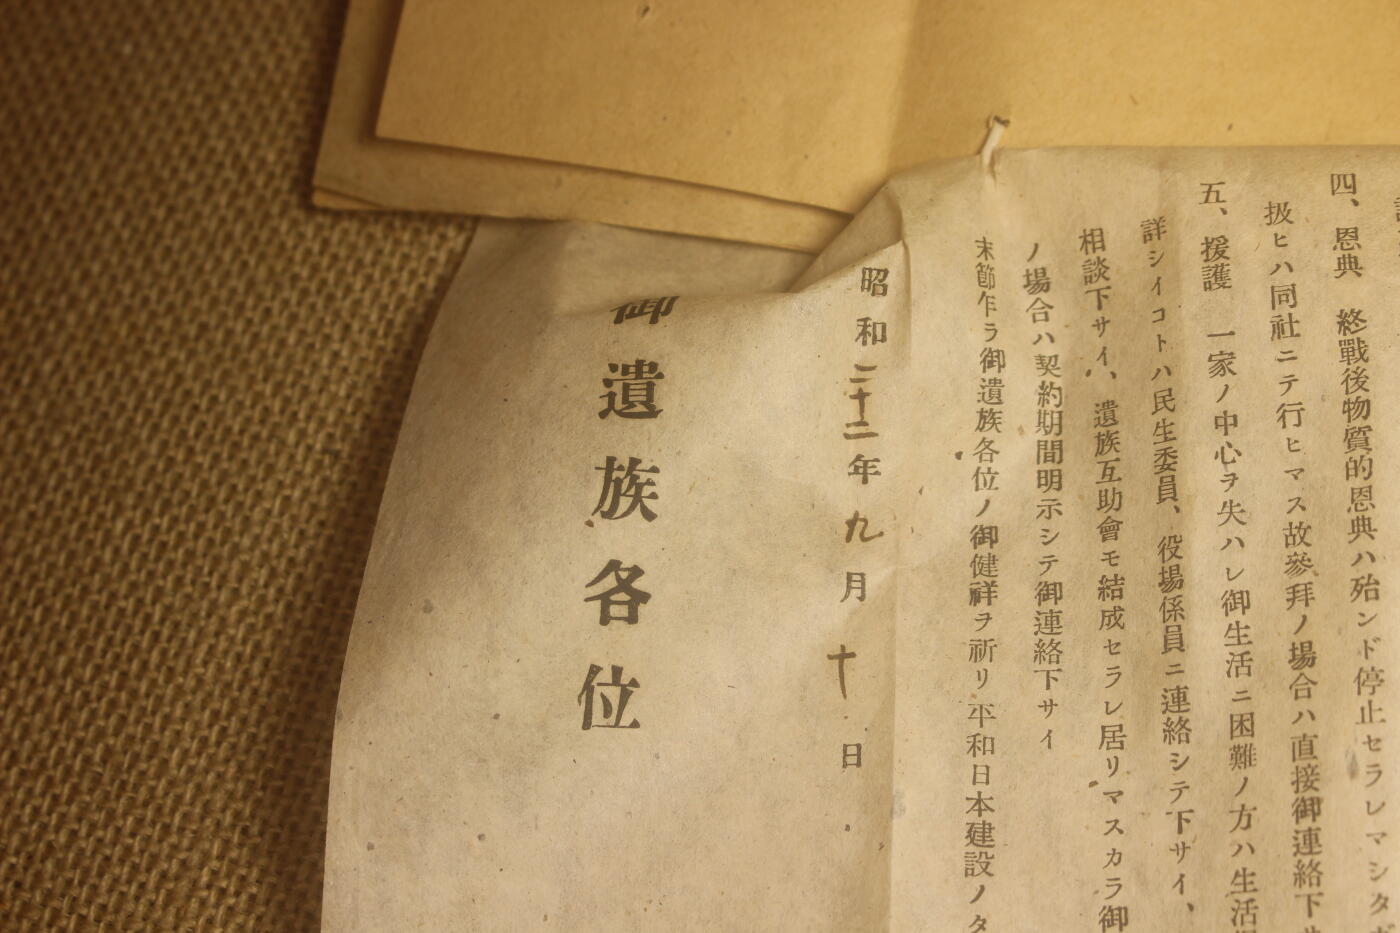 四、恩典　終戰後物質的恩典ハ殆ンド停止セラレマシタ
扱ヒハ同社ニテ行ヒマス故參拜ノ場合ハ直接御連絡下
五、援護　一家ノ中心ヲ失ハレ御生活ニ困難ノ方ハ生活
詳シイコトハ民生委員、役場係員ニ連絡シテ下サイ、
相談下サイ、遺族互助會モ結成セラレ居リマスカラ御
ノ場合ハ契約期間明示シテ御連絡下サイ
末節乍ラ御遺族各位ノ御健祥ヲ祈リ平和日本建設ノタ
昭和二十二年九月十日
御遺族各位